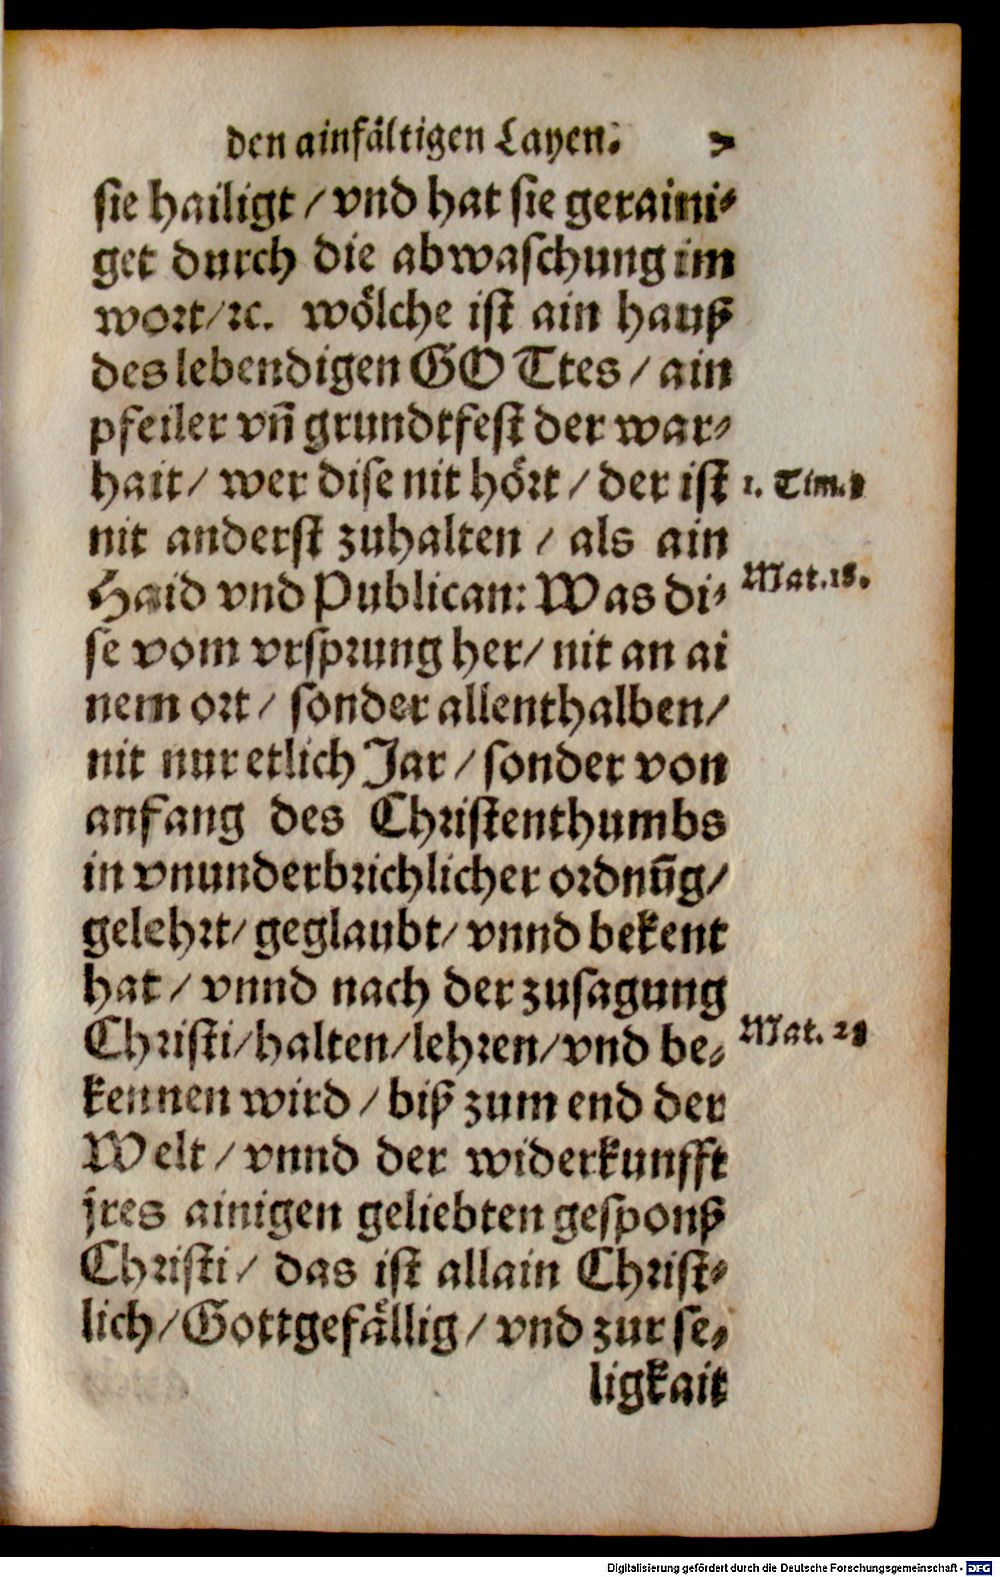 den ainfältigen Layen. 7
sie hailigt / vnd hat sie geraini-
get durch die abwaschung im
wort/ꝛc. wölche ist ain hauß
des lebendigen GOTtes / ain
pfeiler vñ grundtfest der war-
hait / wer dise nit hört / der ist
1. Tim. 3
nit anderst zuhalten / als ain
Haid vnd Publican: Was di-
Mat. 18.
se vom vrsprung her/ nit an ai
nem ort / sonder allenthalben/
nit nur etlich Jar / sonder von
anfang des Christenthumbs
in vnunderbrichlicher ordnūg/
gelehrt/ geglaubt/ vnnd bekent
hat / vnnd nach der zusagung
Christi/halten/lehren/vnd be-
Mat. 28
kennen wird / biß zum end der
Welt / vnnd der widerkunfft
jres ainigen geliebten gesponß
Christi / das ist allain Christ-
lich/Gottgefällig / vnd zur se-
ligkait
Digitalisierung gefördert durch die Deutsche Forschungsgemeinschaft - DFG